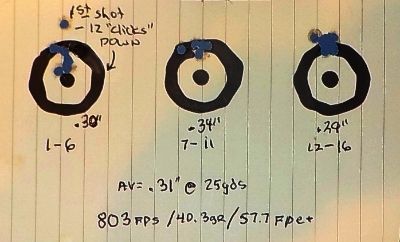 1st shot
- 12 "clicks"
DOWN
.30" .34" .29"
1-6 7-11 12-16
AV= .31" @ 25yds
803 FPS / 40.3gr / 57.7 FPE+